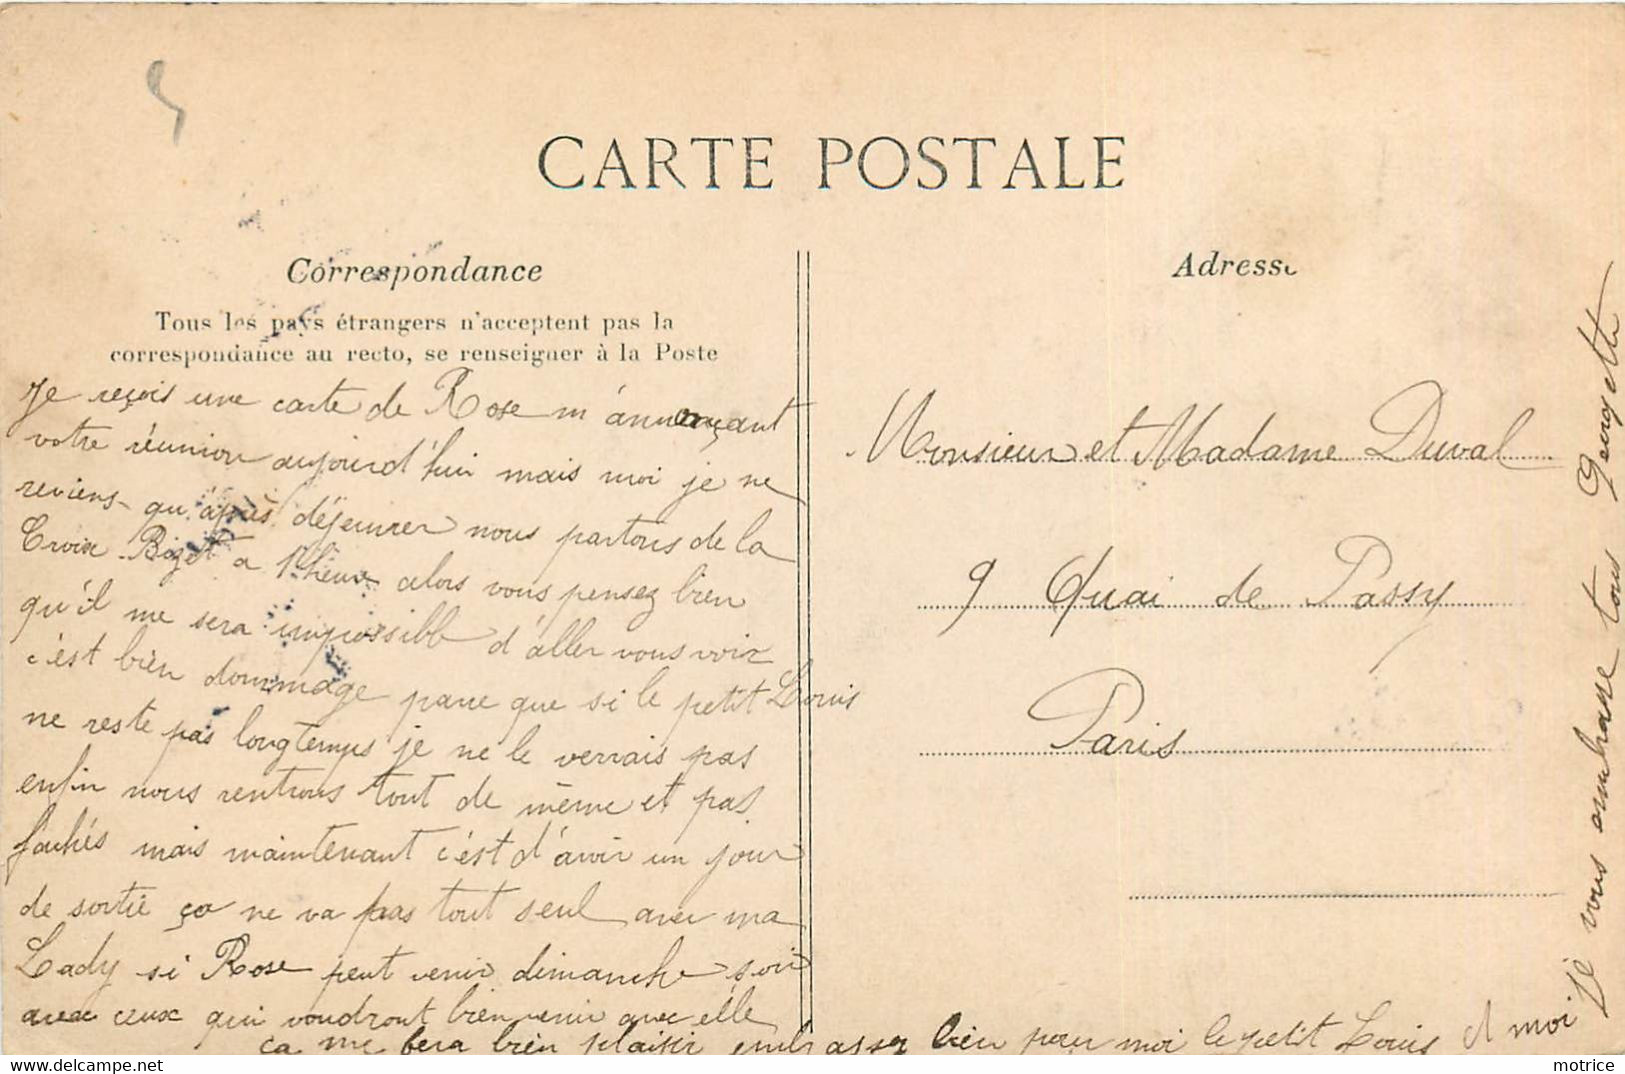 CARTE POSTALE
Correspondance
Tous les pays étrangers n'acceptent pas la
correspondance au recto, se renseigner à la Poste
Adresse
Je reçois une carte de Rose m'annonçant
votre réunion aujourd'hui mais moi je ne
reviens qu'après déjeuner nous partons de la
Croix Bizet a 1 heure alors vous pensez bien
qu'il me sera impossible d'aller vous voir
c'est bien dommage parce que si le petit Louis
ne reste pas longtemps je ne le verrais pas
enfin nous rentrons tout de même et pas
fachés mais maintenant c'est d'avoir un jour
de sortie ça ne va pas tout seul avec ma
Lady si Rose peut venir dimanche soir
avec ceux qui voudront bien venir avec elle
ça me fera bien plaisir embrasser bien pour moi le petit Louis et moi
je vous embrasse tous Georgette
Monsieur et Madame Duval
9 Quai de Passy
Paris
motrice